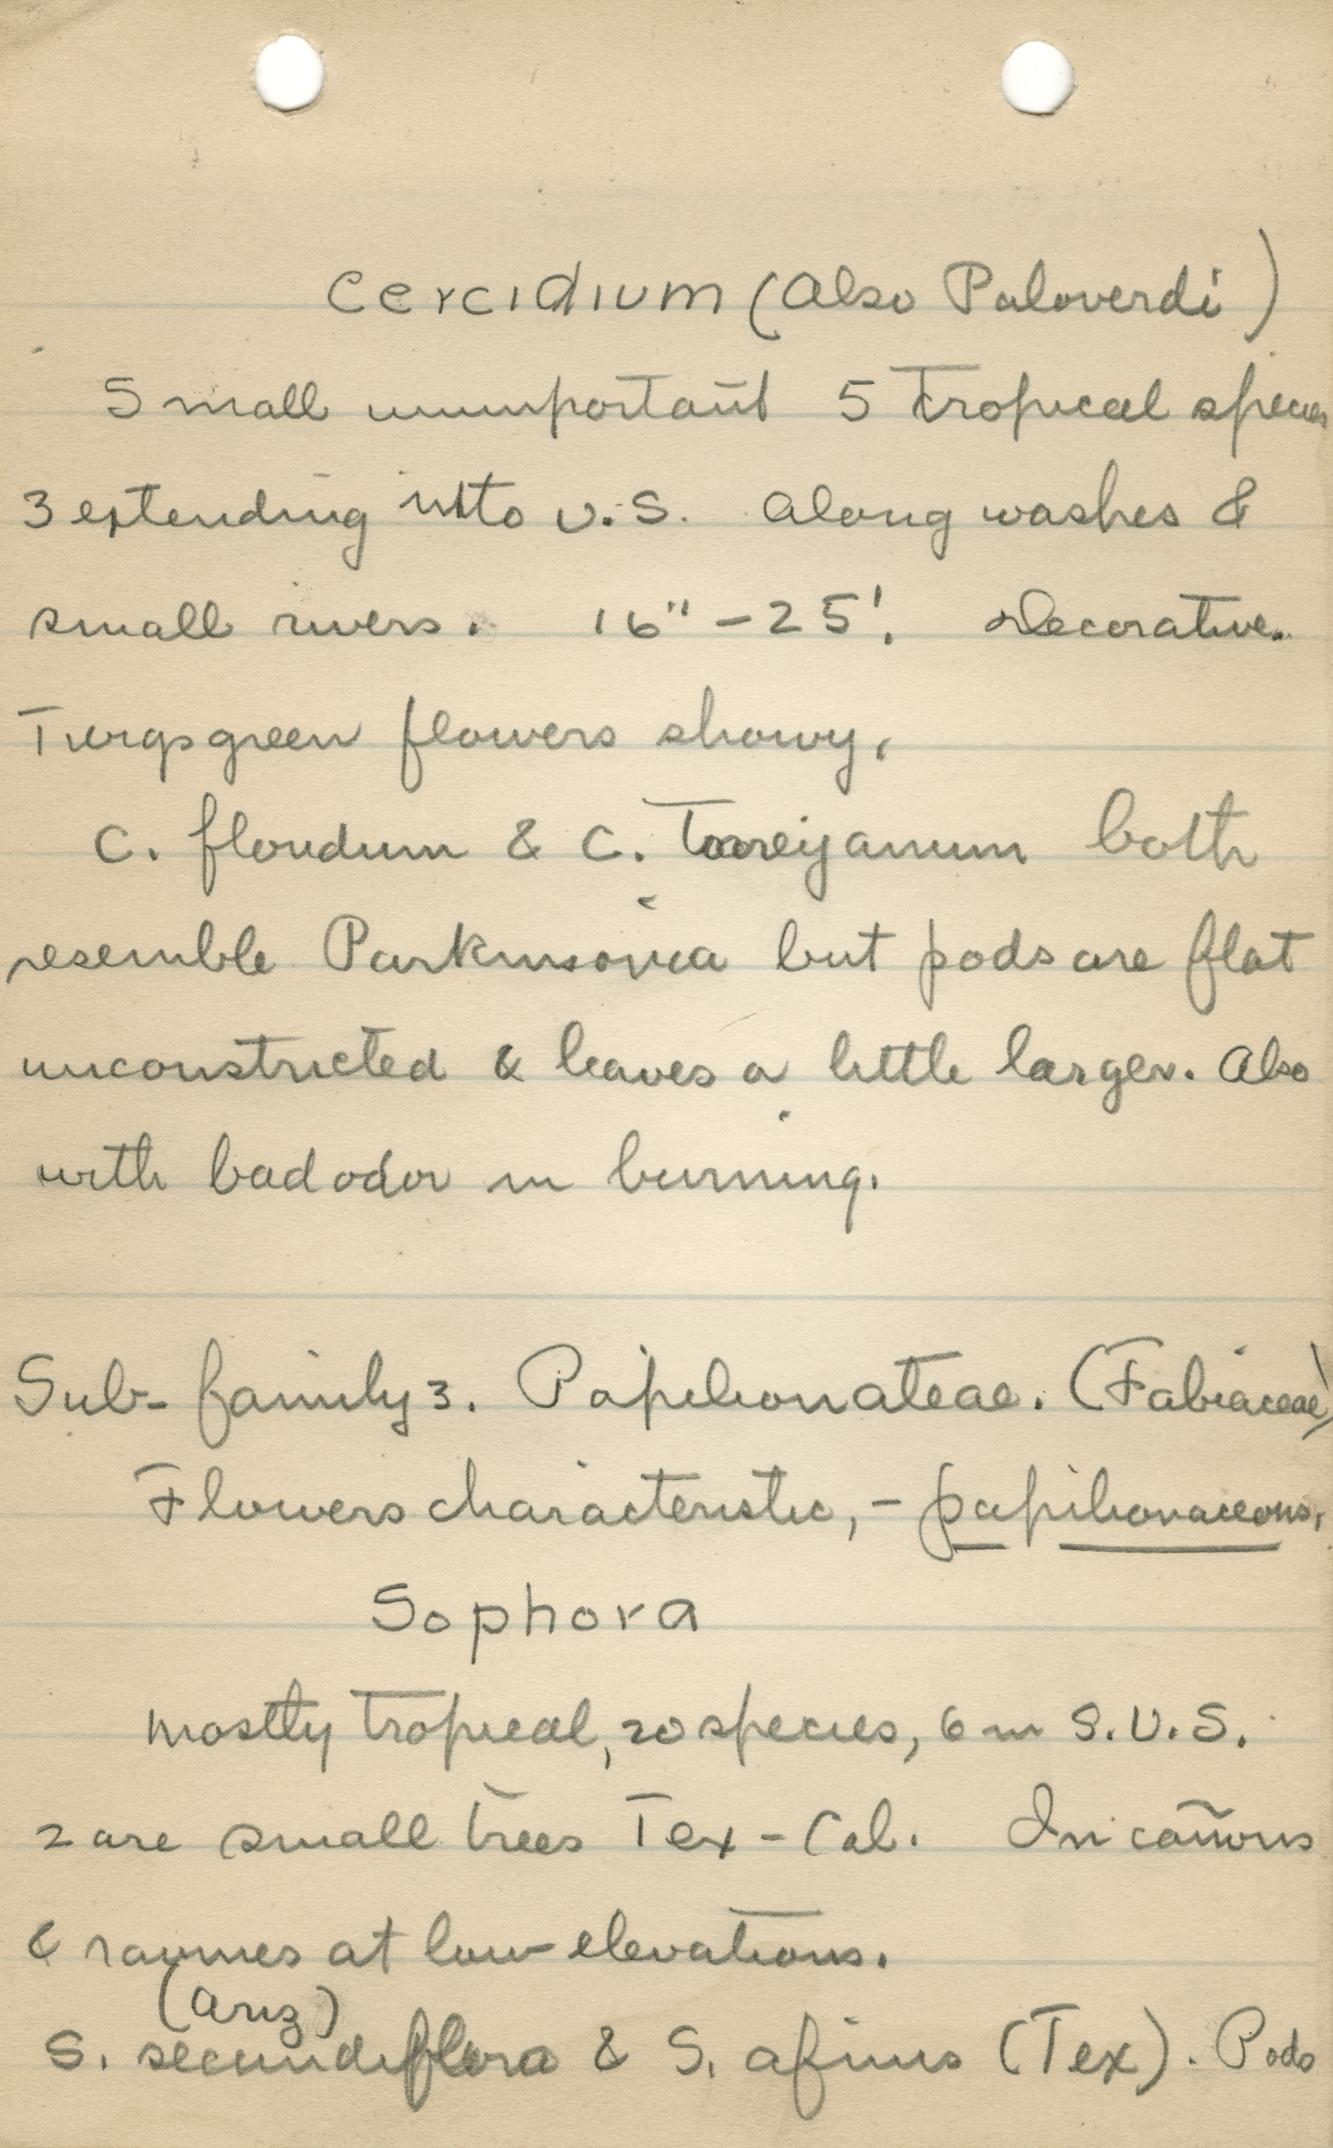 Cercidium (Also Paloverdi)
Small unimportant 5 tropical species
3 extending into U.S. Along washes &
small rivers. 16" - 25'. Decorative.
Twigs green flowers showy.
C. floridum & C. Torreyanum both
resemble Parkinsonia but pods are flat
unconstricted & leaves a little larger. Also
with bad odor in burning.
Sub-family 3. Papilionateae. (Fabiaceae)
Flowers characteristic, - papilionaceous.
Sophora
Mostly tropical, 20 species, 6 in S.U.S.
2 are small trees Tex - Cal. In cañons
& ravines at low elevations.
(Ariz)
S. secundiflora & S. afinis (Tex). Pods